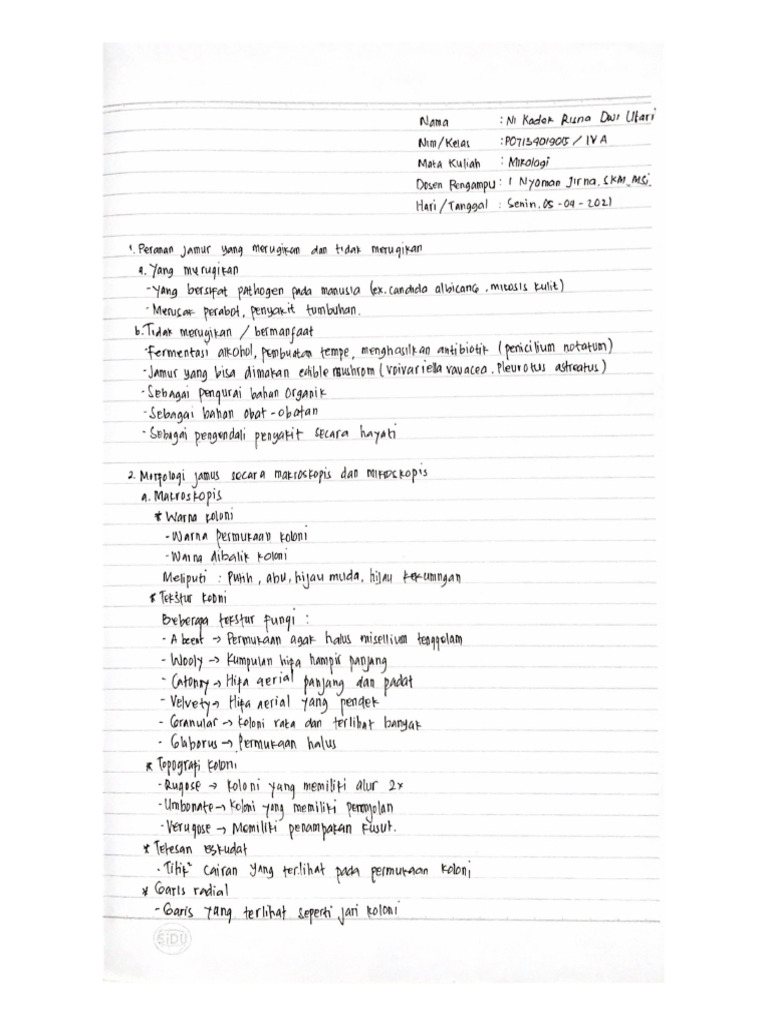 Nama : Ni Kadek Risna Dwi Utari
Nim/Kelas : P0713401905 / IV A
Mata Kuliah : Mikologi
Dosen Pengampu : I Nyoman Jirna, SKM, MSi
Hari/Tanggal : Senin, 05-04-2021
1. Peranan jamur yang merugikan dan tidak merugikan
a. Yang merugikan
- Yang bersifat pathogen pada manusia (ex. candida albicans, mitosis kulit)
- Merusak perabot, penyakit tumbuhan.
b. Tidak merugikan / bermanfaat
- Fermentasi alkohol, pembuatan tempe, menghasilkan antibiotik (penicilium notatum)
- Jamur yang bisa dimakan edible mushrom (voivariella vavacea, pleurotus astreatus)
- Sebagai pengurai bahan organik
- Sebagai bahan obat-obatan
- Sebagai pengendali penyakit secara hayati
2. Morfologi jamus secara makroskopis dan mikroskopis
a. Makroskopis
* Warna koloni
- Warna permukaan koloni
- Warna dibalik koloni
Meliputi : Putih, abu, hijau muda, hijau kekuningan
* Tekstur koloni
Beberapa tekstur fungi :
- Abcent → Permukaan agak halus misellium tenggelam
- Wooly → Kumpulan hifa hampir panjang
- Catonny → Hifa aerial panjang dan padat
- Velvety → Hifa aerial yang pendek
- Granular → koloni rata dan terlihat banyak
- Glaborus → Permukaan halus
* Topografi koloni
- Rugose → koloni yang memiliki alur 2x
- Umbonate → koloni yang memiliki penonjolan
- Verugose → Memiliki penampakan kusut.
* Tetesan eskudat
- Titik² cairan yang terlihat pada permukaan koloni
* Garis radial
- Garis yang terlihat seperti jari koloni
SiDU